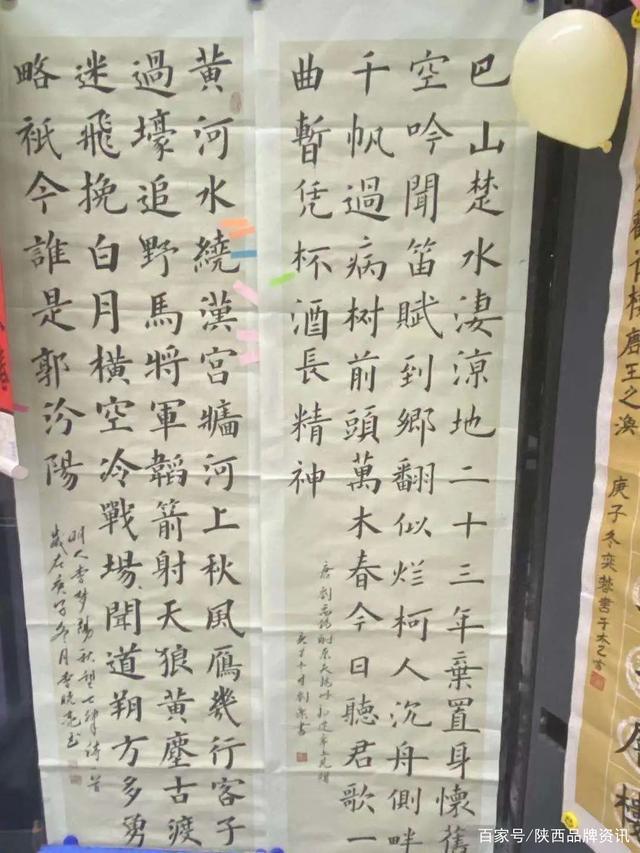 巴山楚水淒涼地二十三年棄置身懷舊
空吟聞笛賦到鄉翻似烂柯人沉舟側畔
千帆過病树前頭萬木春今日聽君歌一
曲暫凭杯酒長精神
唐劉禹锡酬乐天揚州初逢席上見贈
書
黄河水繞漢宮牆河上秋風雁幾行客子
過壕追野馬將軍韜箭射天狼黄塵古渡
迷飛挽白月橫空冷戰場聞道朔方多勇
略衹今誰是郭汾陽
明人李梦陽秋望七律诗一首
歲在庚子冬月李晓亮书
樓唐王之渙
庚子冬奕蓉書于
百家号/陕西品牌资讯